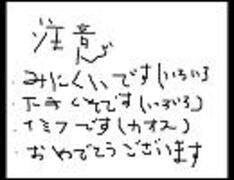 注意
・みにくいです(いろいろ
・下手くそです(いろいろ)
・イミフです(カオス)
・おめでとうございます